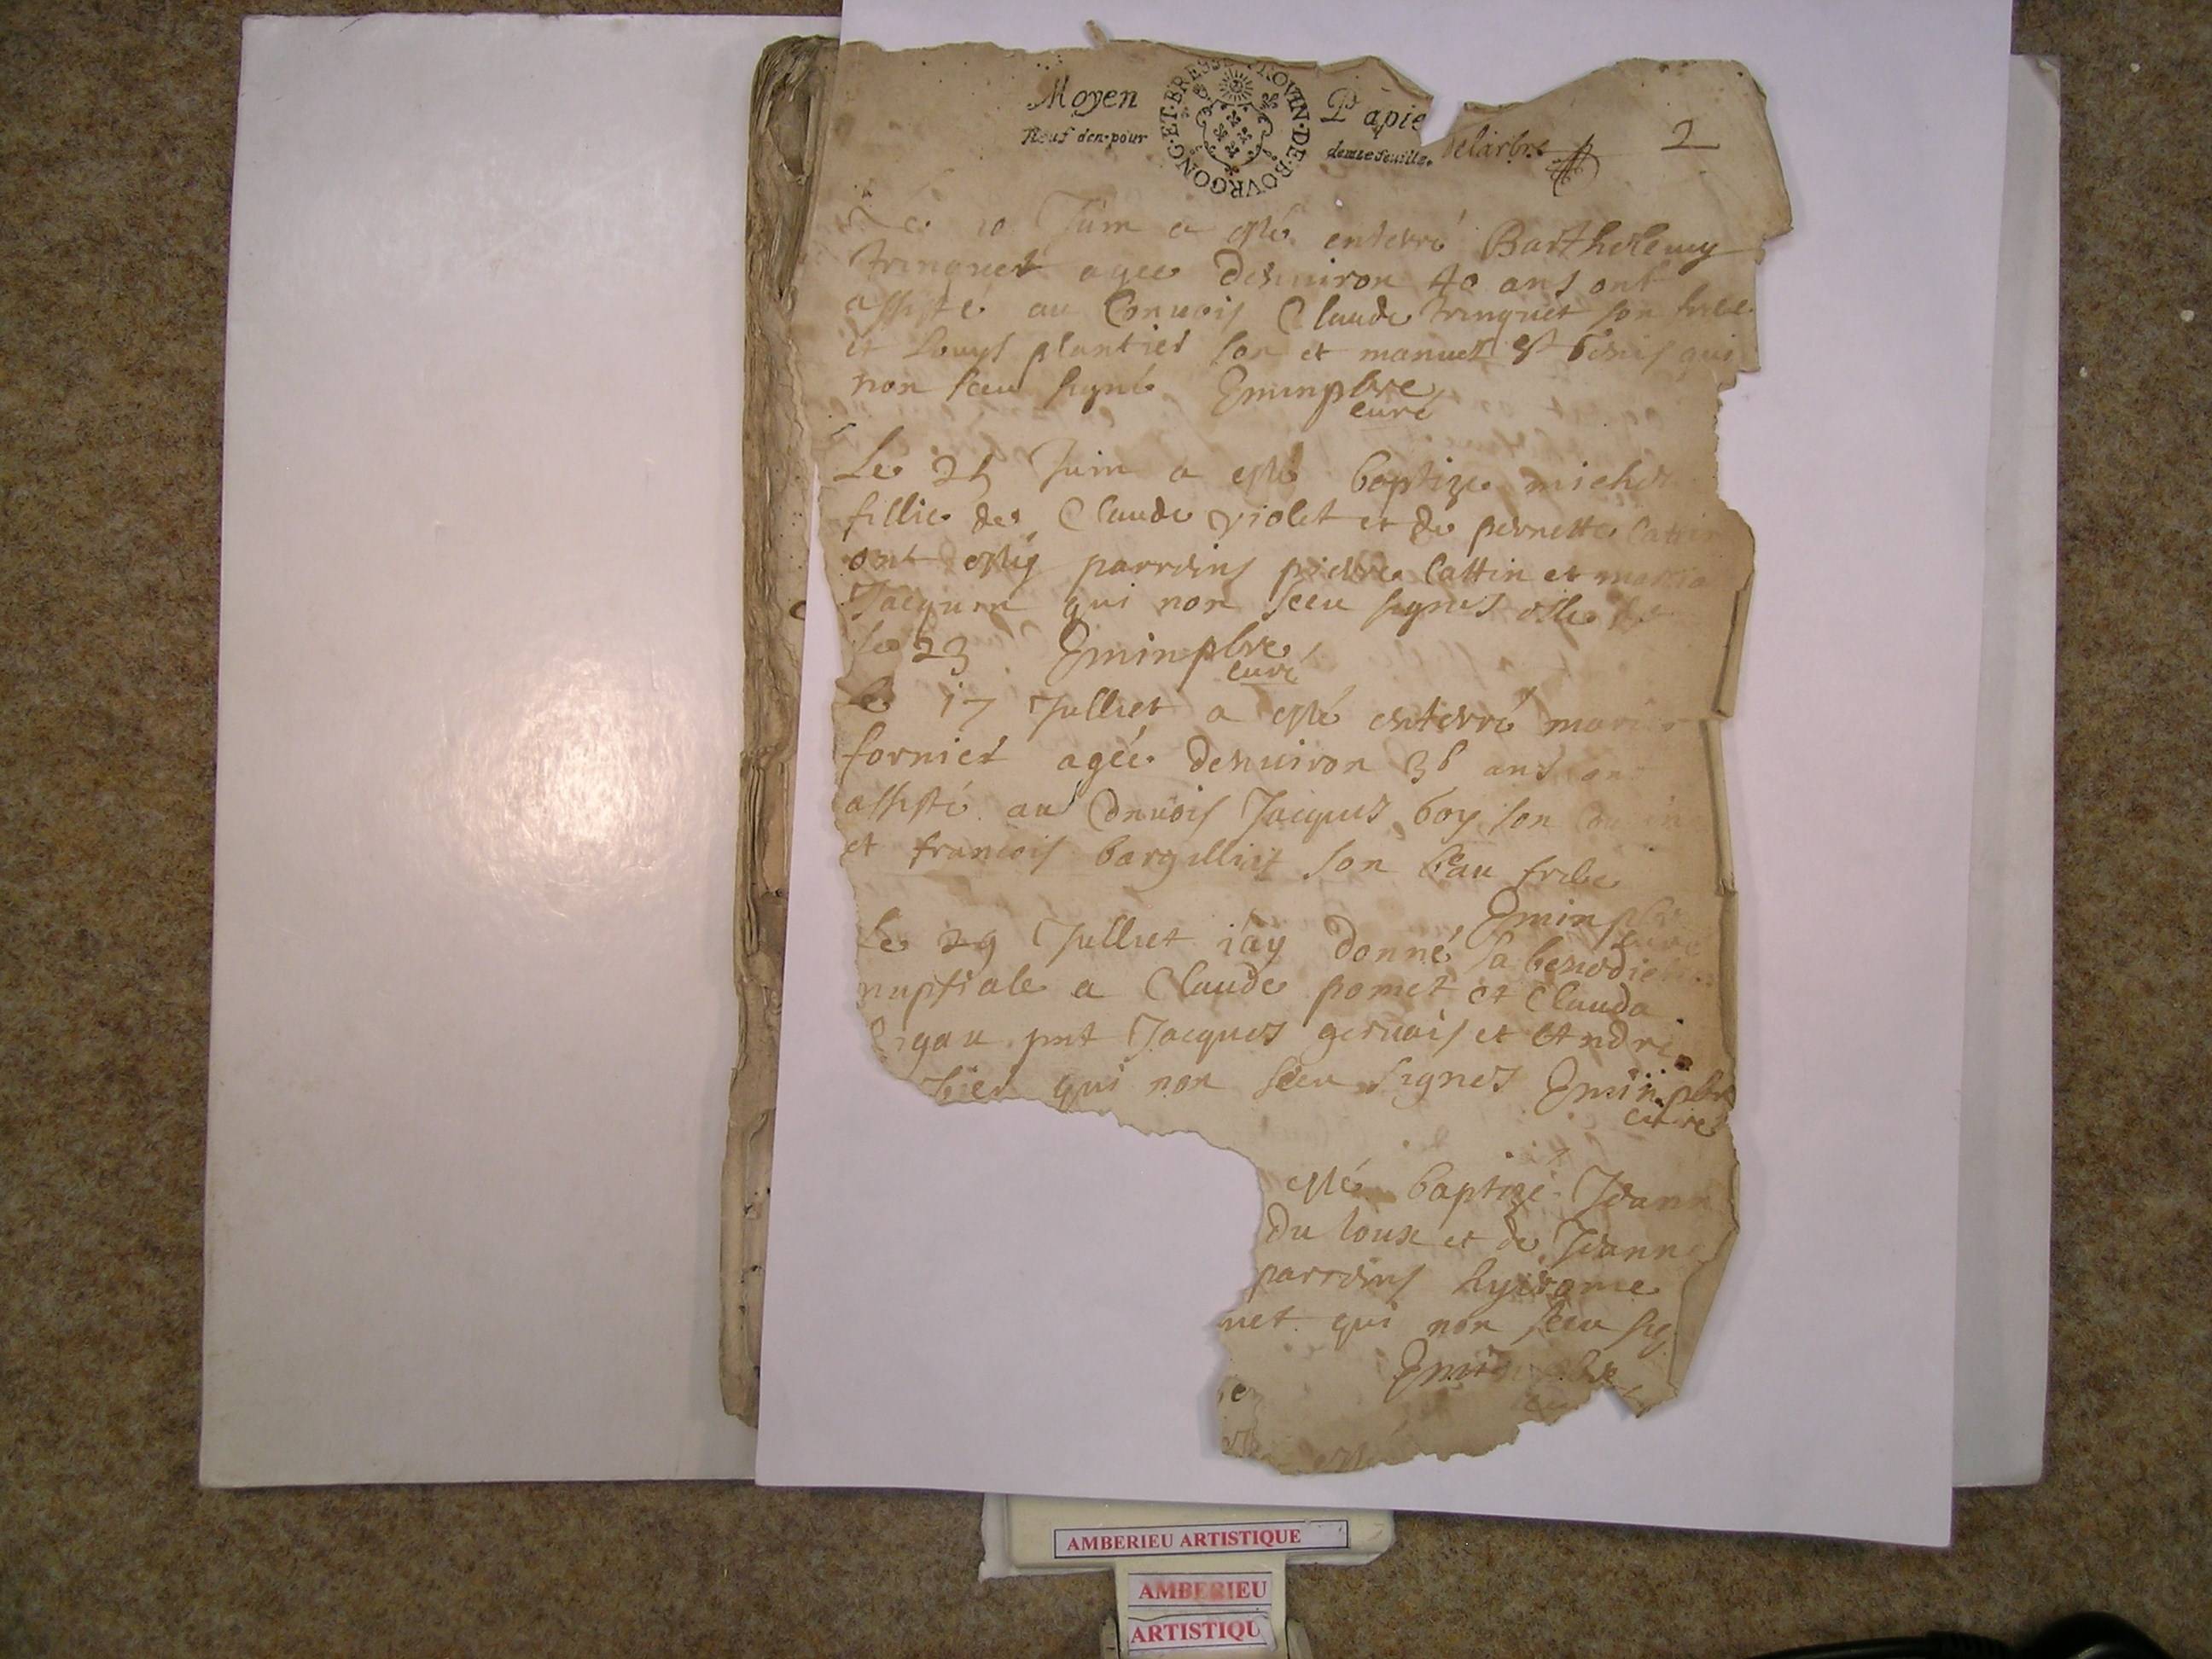 Moyen Papie
Neuf den. pour demie feuille. delarbre 2
PROVIN·DE·BOVRGONG·ET·BRESSE
Le 10 Juin a esté enterré Barthelemy
trinquet agee denuiron 40 ans ont
assisté au Conuois Claude trinquet son frere
et Louys plantier son et manuel qui
non sceu signé Eminpbre
curé
Le 25 Juin a esté baptize michel
fillie de Claude violet et de pernette Cattin
ont estés parreins pierre Cattin et maria
Jacquen qui non sceu signer
le 23 Eminpbre
curé
le 17 Julliet a esté enterré marie
fornier agée denuiron 36 ans ont
assisté au Conuois Jacques boy son
et francois bargillliet son beau frere
Eminpbre
curé
Le 29 Julliet iay donné la benedict
nuptiale a Claude pomet et Clauda
gau pnt Jacques geruais et Andre
bier qui non sceu signer Eminpbre
curé
esté baptizé Jeann
Du loux et de Jeanne
parreins hyerome
net qui non sceu sig
Emin pbre